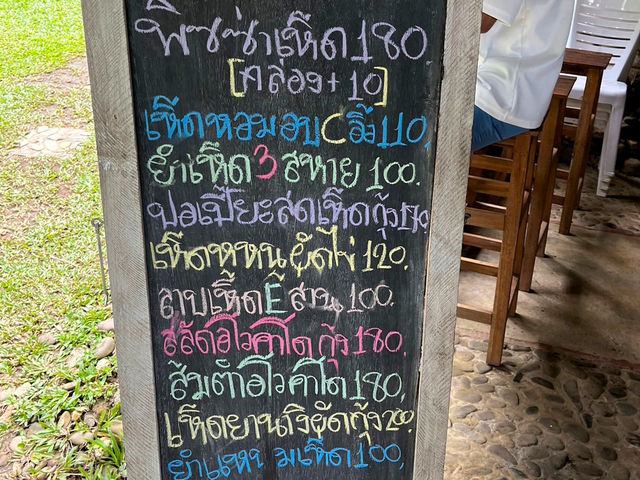 พิซซ่าเห็ด 180.
[กล่อง+10]
เห็ดหอมอบCอิ๊ว 110.
ยำเห็ด 3 สหาย 100.
ปอเปี๊ยะสดเห็ดกุ้ง 170
เห็ดหูหนูผัดไข่ 120.
ลาบเห็ด E สาน 100.
สลัดอโวคาโดกุ้ง 180.
ส้มตำอโวคาโด 180.
เห็ดยานางิผัดกุ้ง 200.
ยำแหนมเห็ด 100.